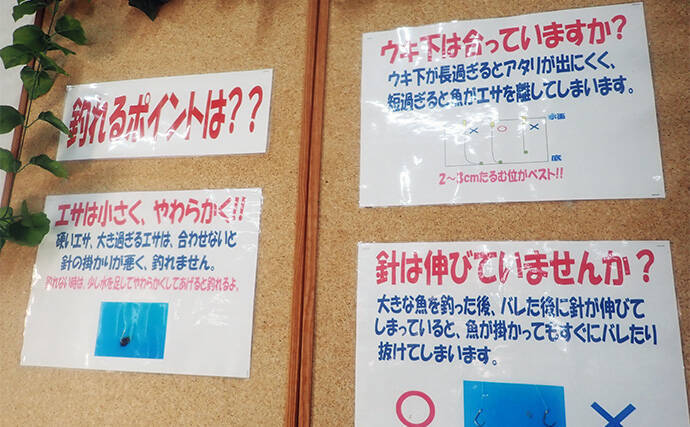 釣れるポイントは??
エサは小さく、やわらかく!!
硬いエサ、大き過ぎるエサは、合わせないと
針の掛かりが悪く、釣れません。
釣れない時は、少し水を足してやわらかくしてあげると釣れるよ。
ウキ下は合っていますか?
ウキ下が長過ぎるとアタリが出にくく、
短過ぎると魚がエサを離してしまいます。
水面
× ○ ×
底
2～3cmたるむ位がベスト!!
針は伸びていませんか?
大きな魚を釣った後、バレた後に針が伸びて
しまっていると、魚が掛かってもすぐにバレたり
抜けてしまいます。
○ ×